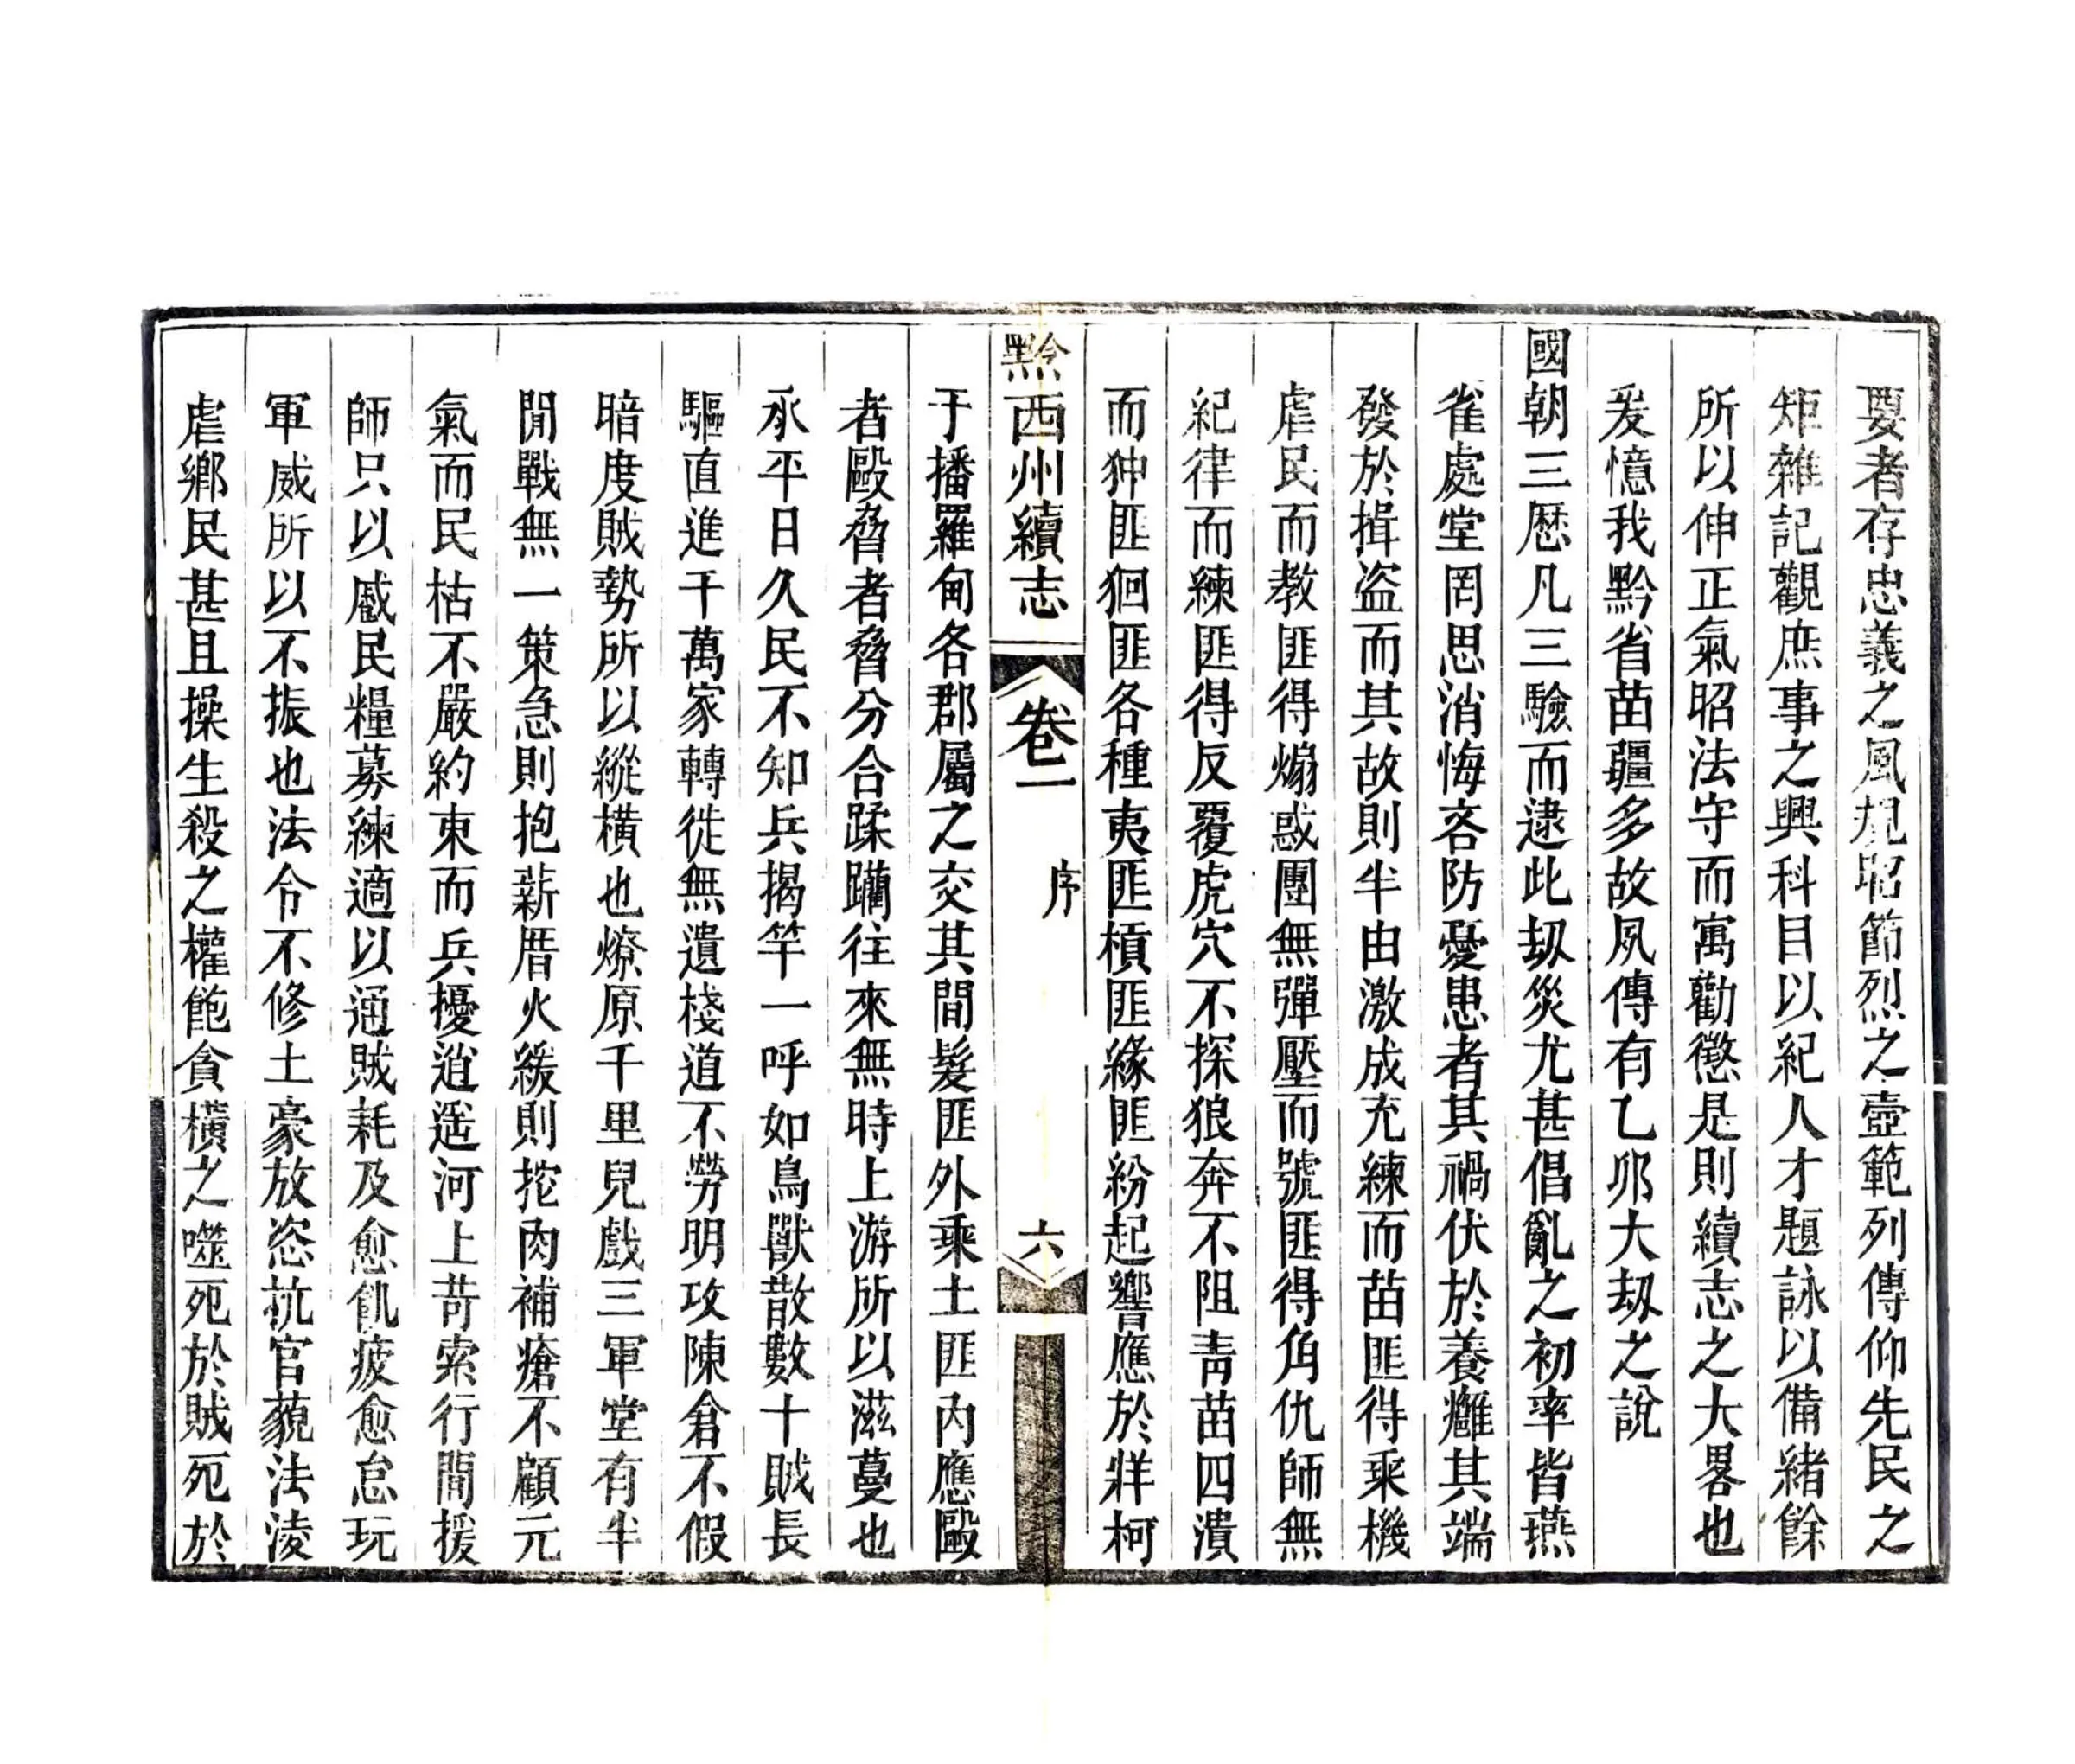 要者存忠義之風規昭節烈之壼範列傳仰先民之
矩雜記觀庶事之興科目以紀人才題詠以備緒餘
所以伸正氣昭法守而寓勸懲是則續志之大畧也
爰憶我黔省苗疆多故夙傳有乙卯大刼之說
國朝三歷凡三驗而逮此刼災尤甚倡亂之初率皆燕
雀處堂罔思消悔吝防憂患者其禍伏於養癰其端
發於揖盜而其故則半由激成充練而苗匪得乘機
虐民而教匪得煽惑團無彈壓而號匪得角仇師無
紀律而練匪得反覆虎穴不探狼奔不阻靑苗四潰
而狆匪狪匪各種夷匪槓匪緣匪紛起響應於牂柯
黔西州續志
卷一
序
六
于播羅甸各郡屬之交其間髮匪外乘土匪內應毆
者毆脅者脅分合蹂躪往來無時上游所以滋蔓也
承平日久民不知兵揭竿一呼如鳥獸散數十賊長
驅直進千萬家轉徙無遺棧道不勞明攻陳倉不假
暗度賊勢所以縱橫也燎原千里兒戲三軍堂有半
閒戰無一策急則抱薪厝火緩則挖肉補瘡不顧元
氣而民枯不嚴約束而兵擾逍遥河上苛索行間援
師只以戲民糧募練適以通賊耗及愈飢疲愈怠玩
軍威所以不振也法令不修土豪放恣抗官藐法淩
虐鄉民甚且操生殺之權飽貪橫之噬死於賊死於